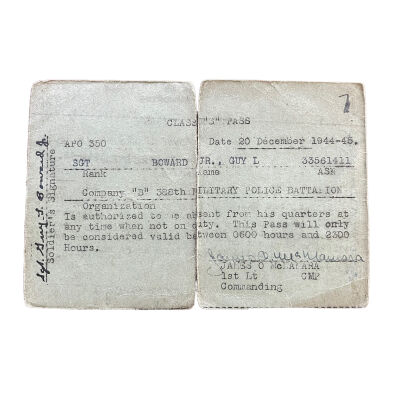 7
CLASS "B" PASS
APO 350 Date 20 December 1944-45.
SGT BOWARD JR., GUY L 33561411
Rank Name ASN
Company "B" 388th MILITARY POLICE BATTALION
Organization
Is authorized to be absent from his quarters at
any time when not on duty. This Pass will only
be considered valid between 0600 hours and 2300
Hours.
James O McNamara
JAMES O McNAMARA
1st Lt CMP
Commanding
Sgt. Guy L. Boward Jr.
Soldier's Signature